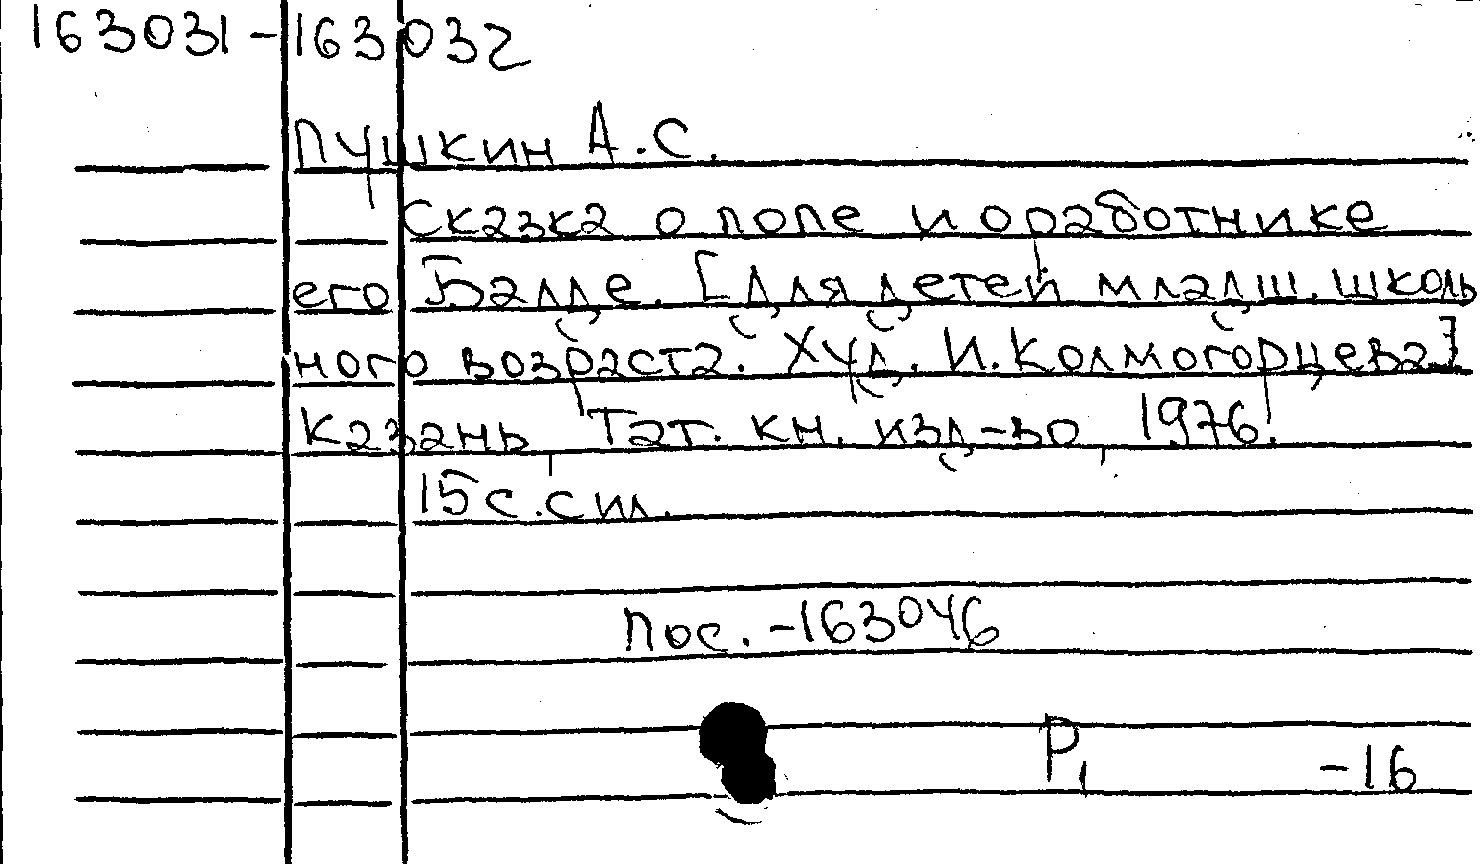 163031-163032
Пушкин А.С.
Сказка о попе и о работнике
его Балде. [Для детей младш. школь
ного возраста. Худ. И. Колмогорцева]
Казань, Тат. кн. изд-во, 1976.
15 с. с ил.
Пос. -163046
Р1 -16